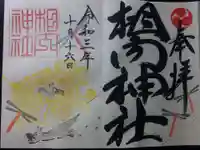 奉拝
神社
令和三年
十月十六日
神社